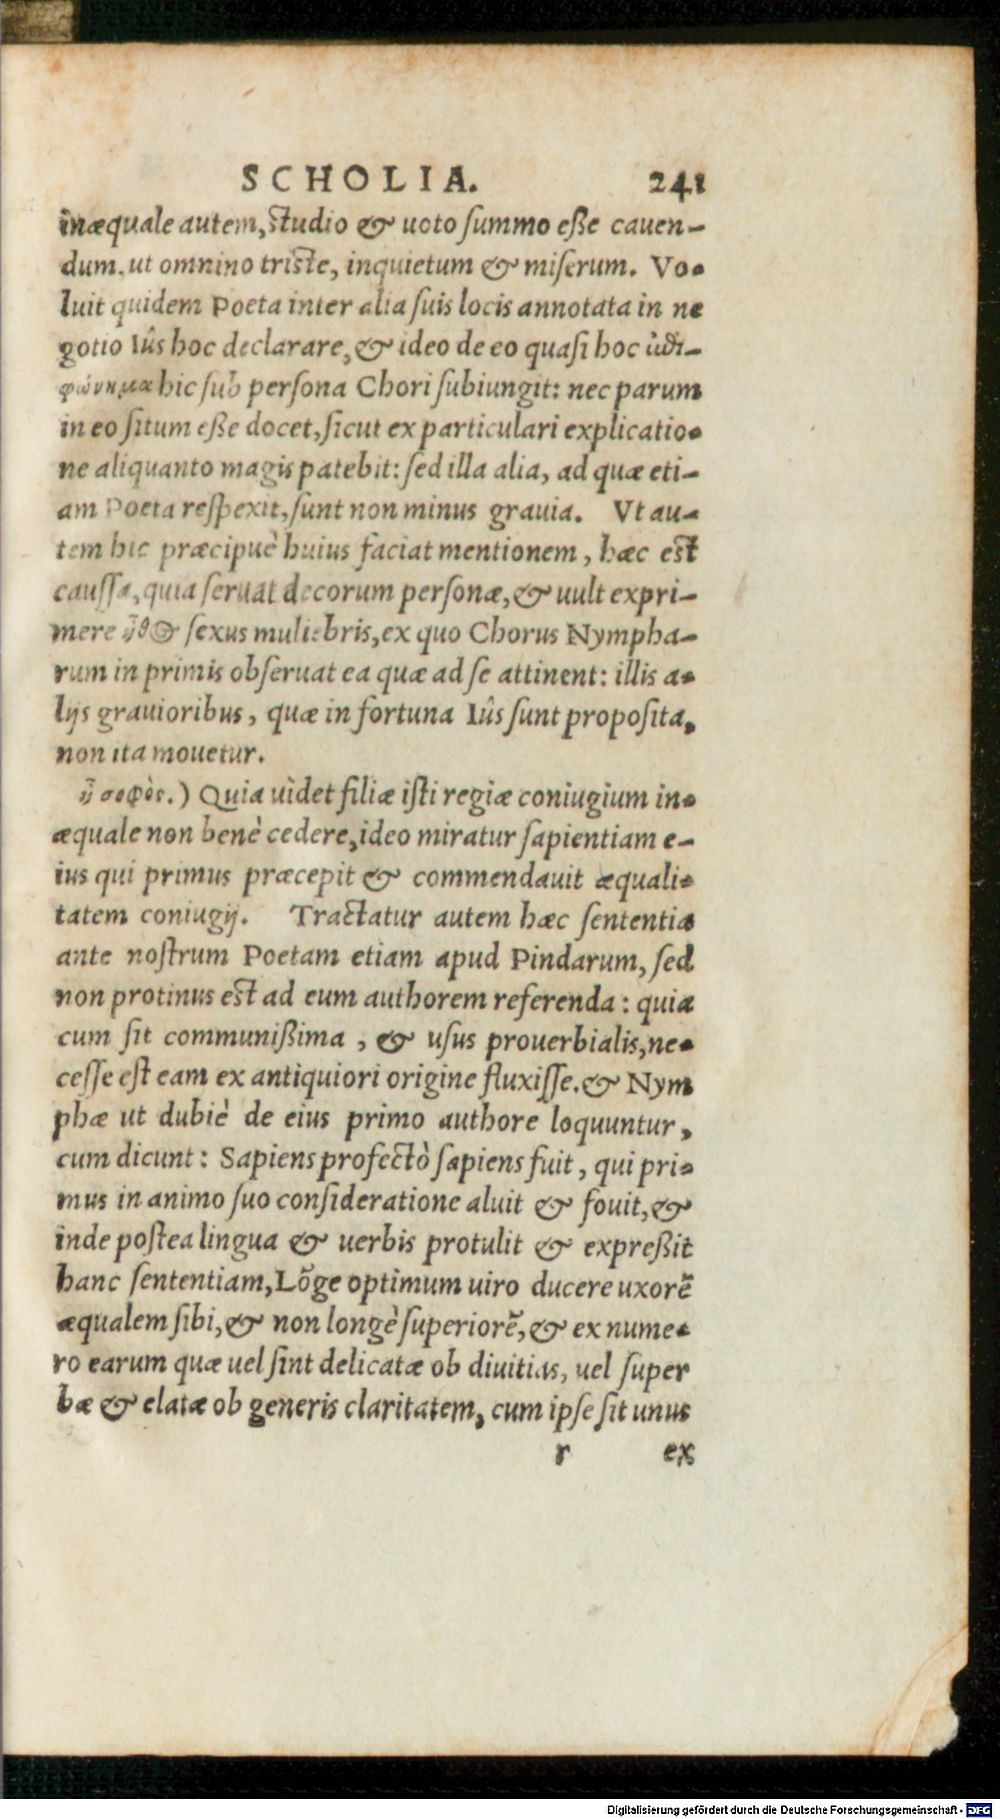 SCHOLIA. 241
inæquale autem, studio & uoto summo eße cauen-
dum. ut omnino triste, inquietum & miserum. Vo-
luit quidem Poeta inter alia suis locis annotata in ne
gotio Iûs hoc declarare, & ideo de eo quasi hoc
φώνημα hic sub persona Chori subiungit: nec parum
in eo situm eße docet, sicut ex particulari explicatio-
ne aliquanto magis patebit: sed illa alia, ad quæ eti-
am Poeta respexit, sunt non minus grauia. Vt au-
tem hic præcipuè huius faciat mentionem, hæc est
caussa, quia seruat decorum personæ, & uult expri-
mere sexus muliebris, ex quo Chorus Nympha-
rum in primis obseruat ea quæ ad se attinent: illis a-
lijs grauioribus, quæ in fortuna Iûs sunt proposita,
non ita mouetur.
ἦ σοφὸς.) Quia uidet filiæ isti regiæ coniugium in-
æquale non benè cedere, ideo miratur sapientiam e-
ius qui primus præcepit & commendauit æquali-
tatem coniugij. Tractatur autem hæc sententia
ante nostrum Poetam etiam apud Pindarum, sed
non protinus est ad eum authorem referenda: quia
cum sit communißima, & usus prouerbialis, ne-
cesse est eam ex antiquiori origine fluxisse. & Nym
phæ ut dubiè de eius primo authore loquuntur,
cum dicunt: Sapiens profectò sapiens fuit, qui pri-
mus in animo suo consideratione aluit & fouit, &
inde postea lingua & uerbis protulit & expreßit
hanc sententiam, Lõge optimum uiro ducere uxorẽ
æqualem sibi, & non longè superiorẽ, & ex nume-
ro earum quæ uel sint delicatæ ob diuitias, uel super
bæ & elatæ ob generis claritatem, cum ipse sit unus
r ex
Digitalisierung gefördert durch die Deutsche Forschungsgemeinschaft - DFG